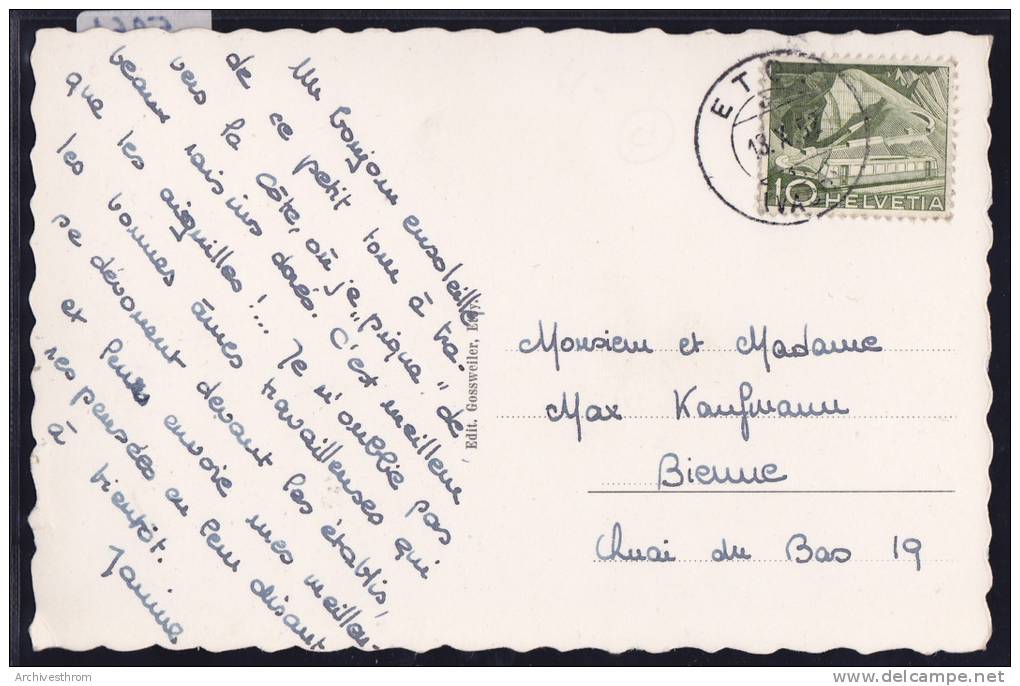 Un bonjour ensoleillé
de ce petit tour à tra-
vers la Côte, où je „pique" de
beaux raisins dorés. C'est meilleur
que les aiguilles!... Je n'oublie pas
les bonnes âmes travailleuses qui
se dévouent devant les établis,
et leur envoie mes meilleu-
res pensées en leur disant
à bientôt.
Janine
Edit. Gossweiler,
ET
13. X. 52
(VA
10 HELVETIA
Monsieur et Madame
Max Kaufmann
Bienne
Quai du Bas 19
Archivesthrom
www.delcampe.net